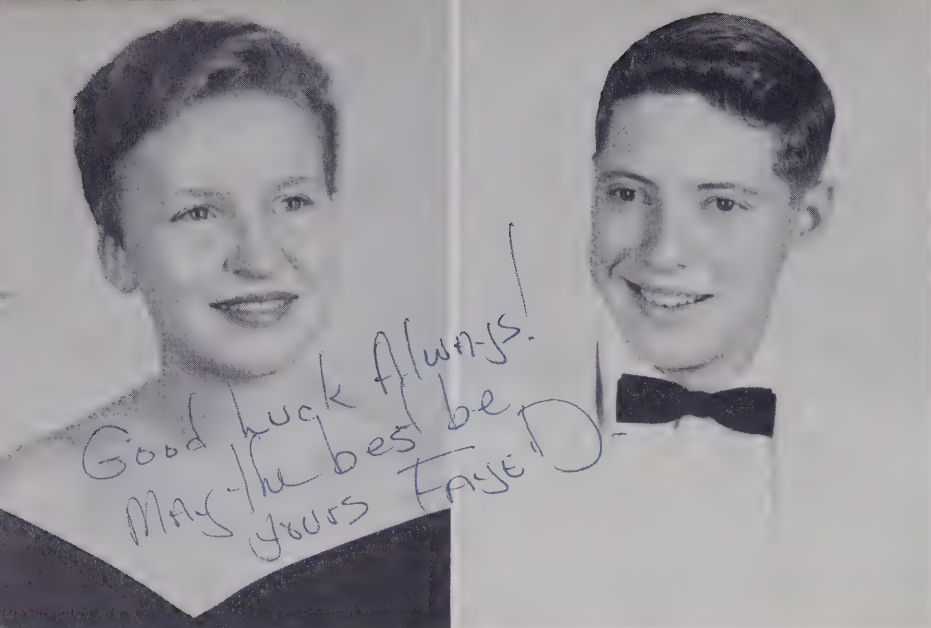 Good Luck Always!
May the best be
yours Faye D.